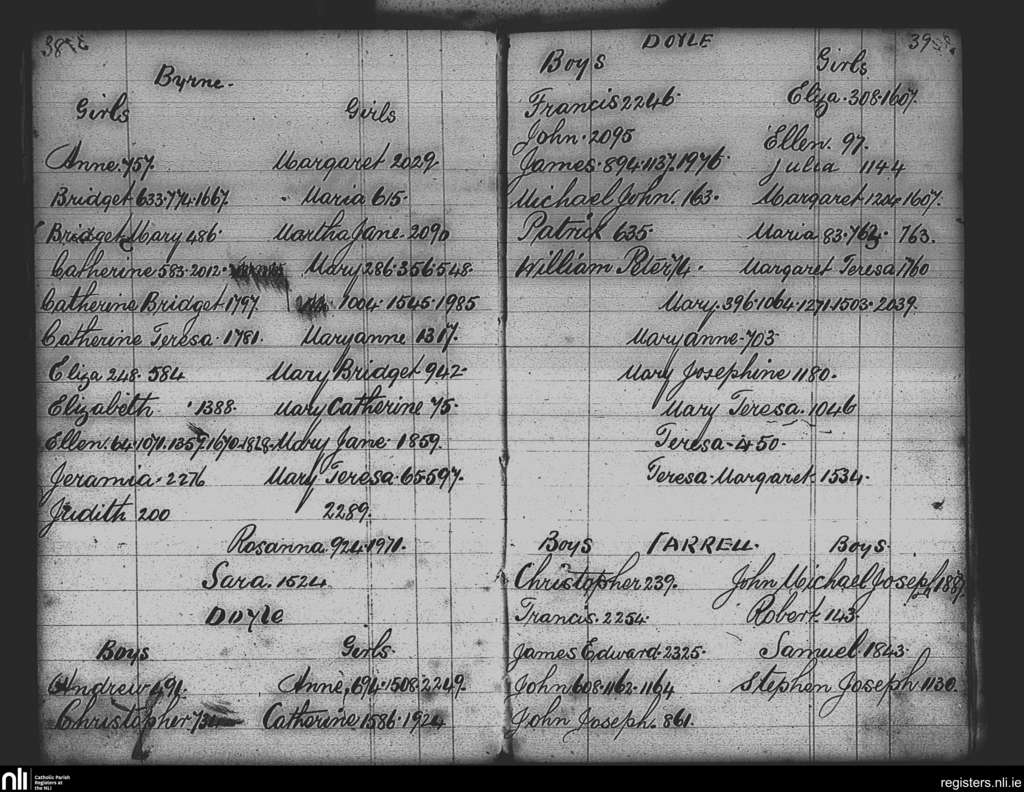 38
Byrne.
Girls Girls
Anne. 757. Margaret 2029.
Bridget 633. 774. 1667. Maria 615.
Bridget Mary 486. Martha Jane 2090
Catherine 583. 2012. Mary 286. 356. 548.
Catherine Bridget. 1797. 1004. 1545. 1985
Catherine Teresa. 1781. Maryanne 1317.
Eliza 248. 584 Mary Bridget 942.
Elizabeth. 1388. Mary Catherine 75.
Ellen. 64. 1071. 1357. 1670. 1828. Mary Jane. 1859.
Jeramia. 2276 Mary Teresa. 65. 597.
Judith 200 2289.
Rosanna. 924. 1971.
Sara. 1524
Doyle
Boys Girls.
Andrew 491. Anne, 694. 1508. 2249.
Christopher Catherine 1586. 1924
39
DOYLE
Boys Girls
Francis 2246. Eliza. 308. 1607.
John. 2095 Ellen. 97.
James. 894. 1137. 1976. Julia 1144
Michael John. 163. Margaret 1607.
Patrick 635. Maria 83. 762. 763.
William Peter 74. Margaret Teresa 1760
Mary. 396. 1064. 1271. 1503. 2039.
Maryanne. 703
Mary Josephine 1180.
Mary Teresa. 1046
Teresa. 450.
Teresa. Margaret. 1534.
Boys FARRELL. Boys.
Christopher 239. John Michael Joseph
Francis. 2254. Robert. 143.
James Edward. 2325. Samuel. 1843.
John 608. 1162. 1164 Stephen Joseph 1130.
John Joseph. 861.
nli Catholic Parish
Registers at
the NLI
registers.nli.ie